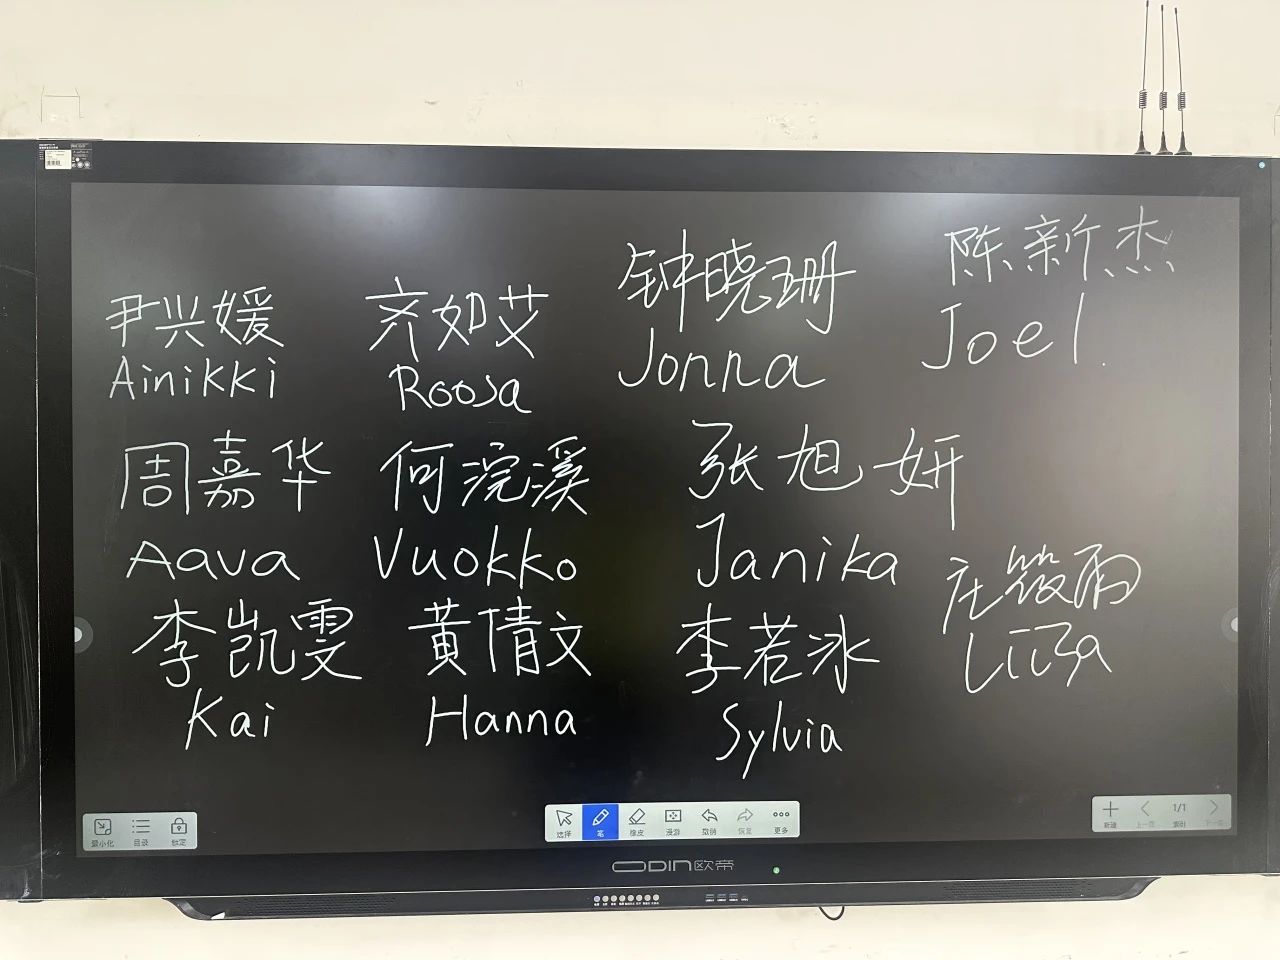 尹兴媛
Ainikki
齐如艾
Roosa
钟晓珊
Jonna
陈新杰
Joel.
周嘉华
Aava
何浣溪
Vuokko
张旭妍
Janika
庄筱雨
Liisa
李凯雯
Kai
黄倩文
Hanna
李若冰
Sylvia
最小化
目录
锁定
选择
笔
橡皮
漫游
撤销
恢复
更多
新建
上一页
1/1
索引
下一页
ODIN欧帝